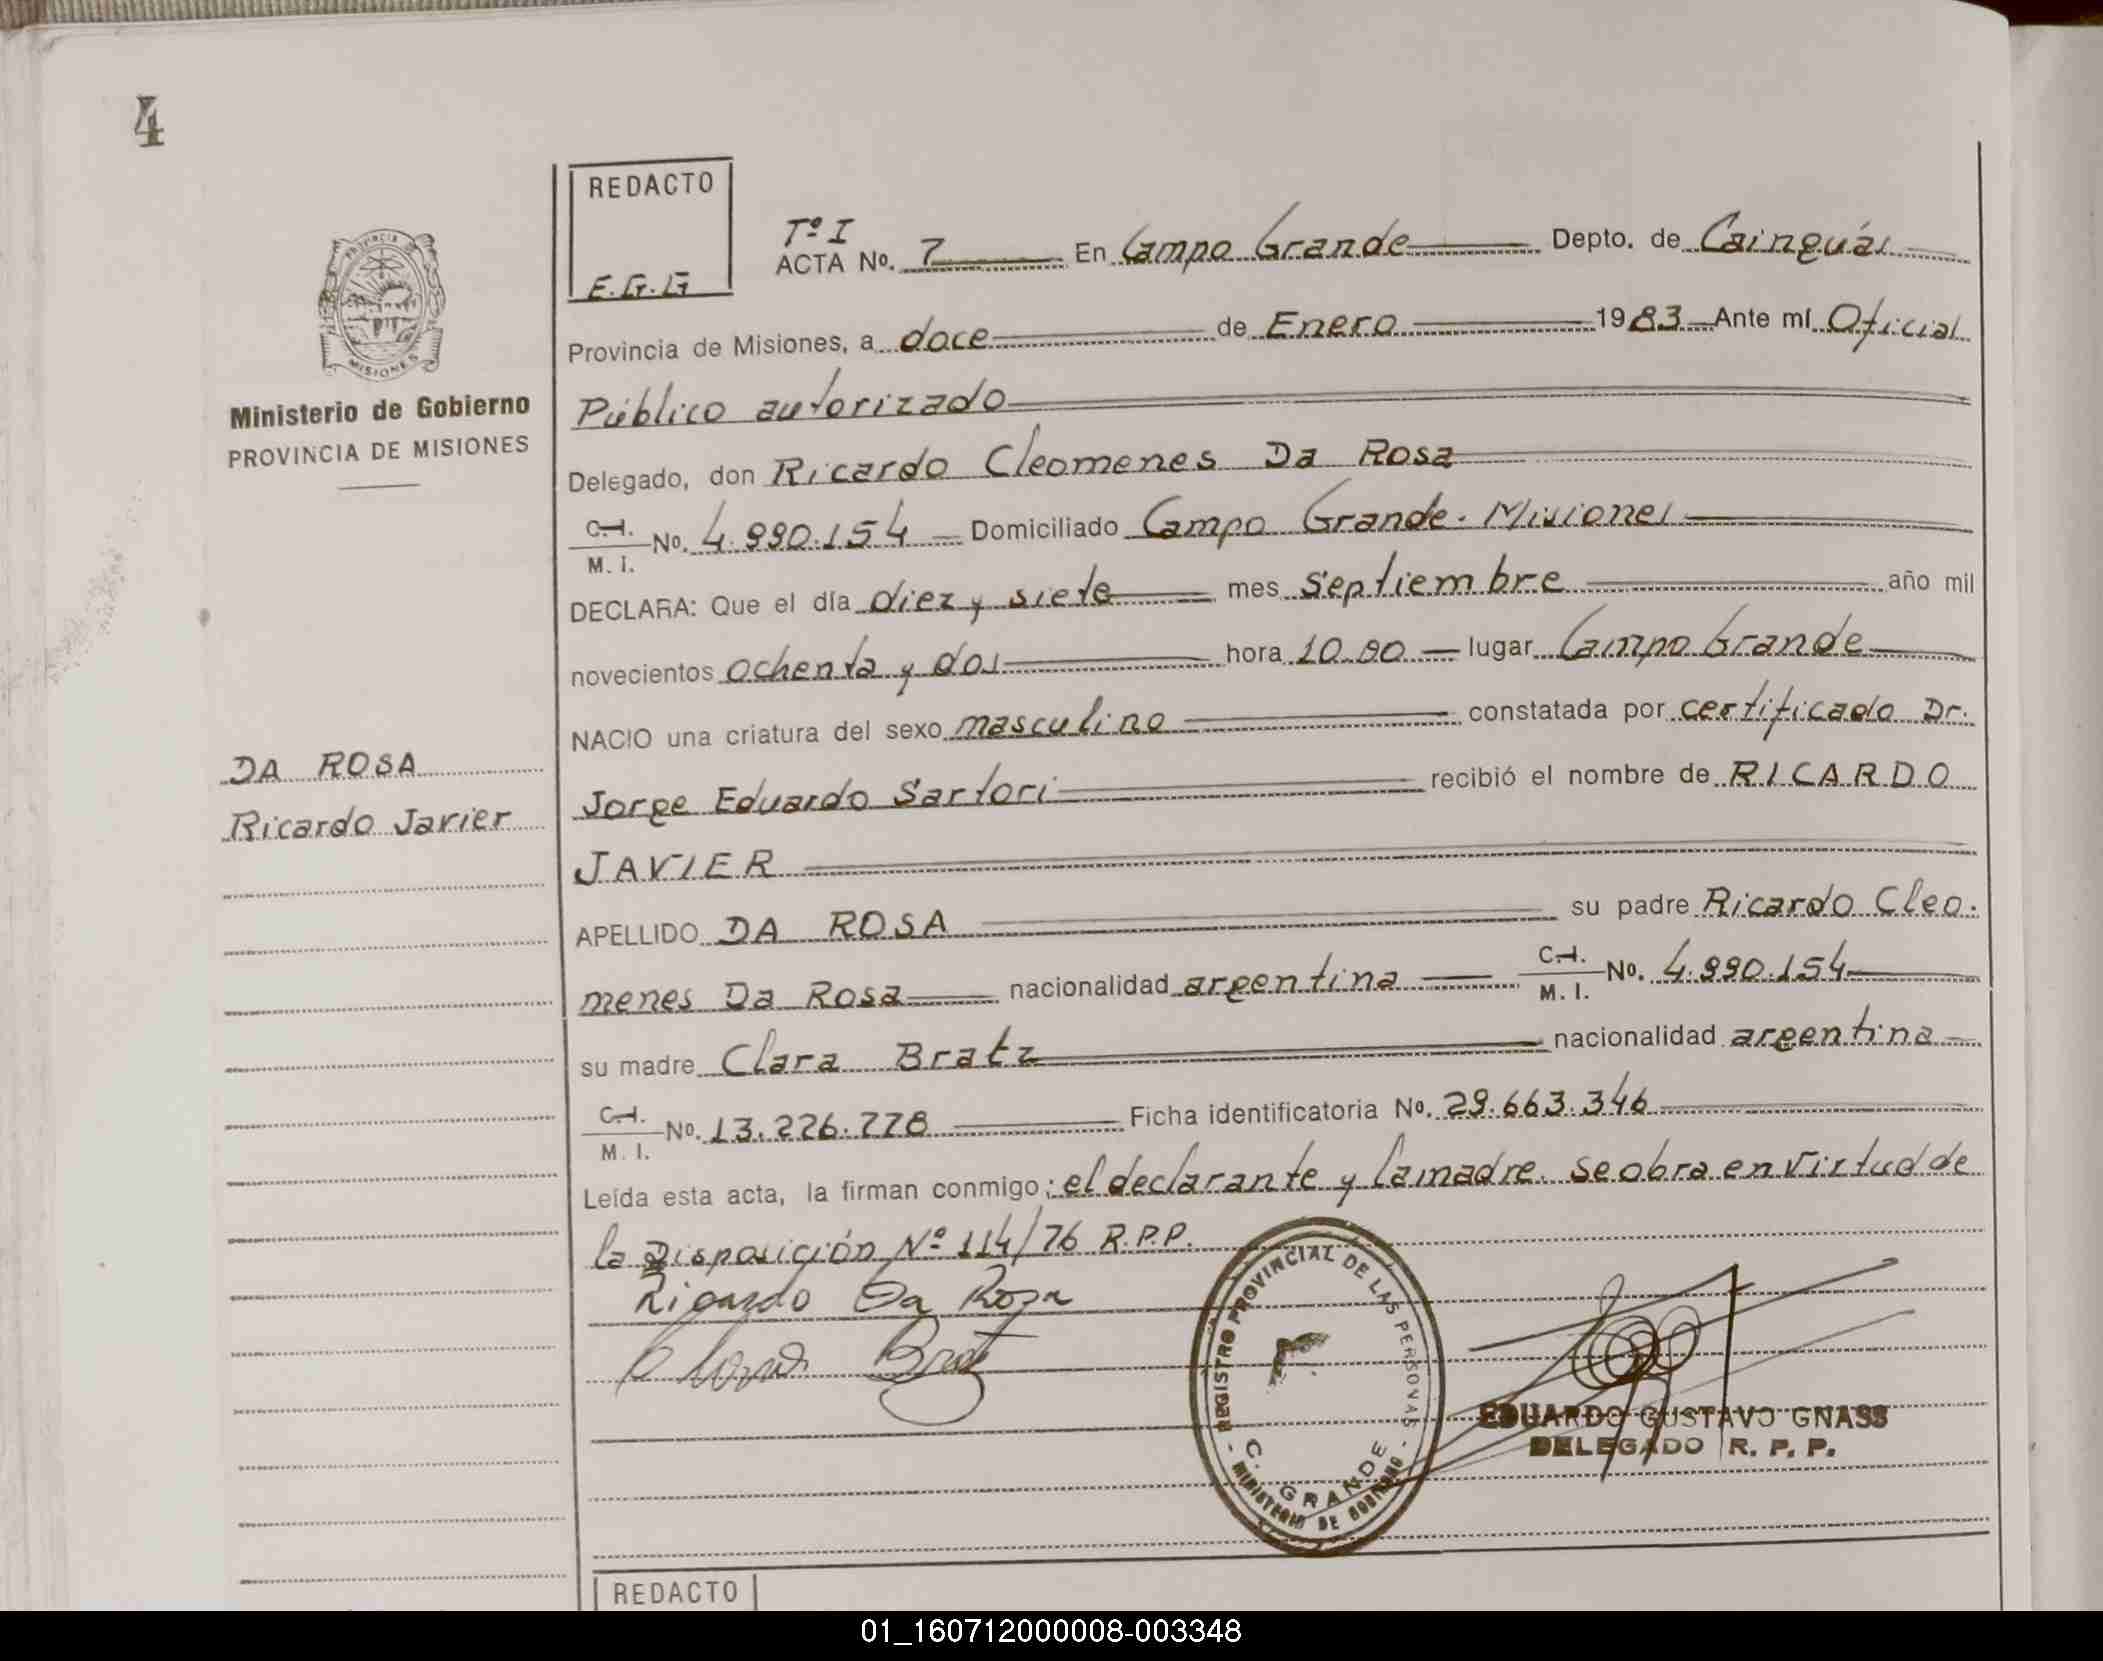 4
REDACTO
E.G.G
Tº I
ACTA Nº. 7 En Campo Grande Depto. de Cainguás
Provincia de Misiones, a doce de Enero 1983 Ante mí Oficial
Público autorizado
Delegado, don Ricardo Cleomenes Da Rosa
C.I. M. I. Nº. 4.990.154 Domiciliado Campo Grande. Misiones
DECLARA: Que el día diez y siete mes Septiembre año mil
novecientos ochenta y dos hora 10.00 lugar Campo Grande
NACIO una criatura del sexo masculino constatada por certificado Dr.
Jorge Eduardo Sartori recibió el nombre de RICARDO
JAVIER
APELLIDO DA ROSA su padre Ricardo Cleo.
menes Da Rosa nacionalidad argentina C.I. M. I. Nº. 4.990.154
su madre Clara Bratz nacionalidad argentina
C.I. M. I. Nº. 13.226.778 Ficha identificatoria Nº. 29.663.346
Leída esta acta, la firman conmigo: el declarante y la madre. Se obra en virtud de
la Disposición Nº 114/76 R.P.P.
Ricardo Da Rosa
Clara Bratz
Provincia
MISIONES
Ministerio de Gobierno
PROVINCIA DE MISIONES
DA ROSA
Ricardo Javier
REGISTRO PROVINCIAL DE LAS PERSONAS
C. GRANDE
MINISTERIO DE GOBIERNO
EDUARDO GUSTAVO GNASS
DELEGADO R. P. P.
REDACTO
01_160712000008-003348